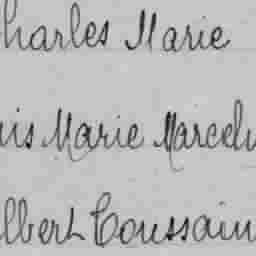 Charles Marie
uis Marie Marcel
lbert Toussain